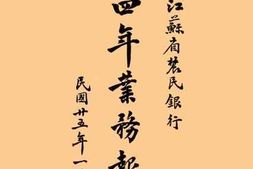 江蘇省農民銀行
四年業務報
民國廿五年一